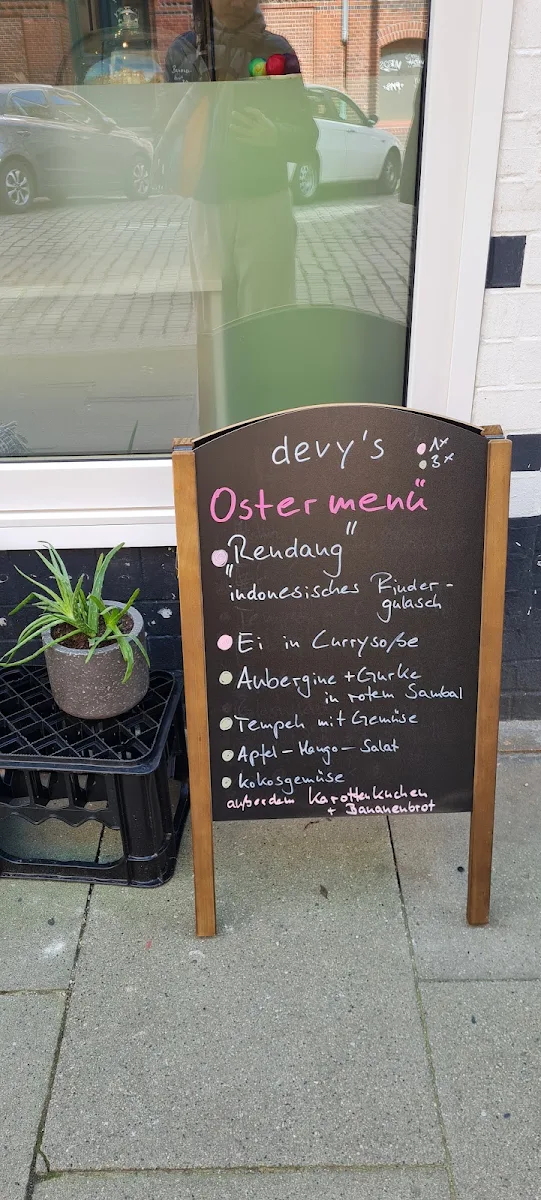 devy's
1x
3x
Ostermenü
"Rendang"
indonesisches Rinder-
gulasch
Ei in Currysoße
Aubergine + Gurke
in rotem Sambal
Tempeh mit Gemüse
Apfel - Mango - Salat
Kokosgemüse
außerdem Karottenkuchen
+ Bananenbrot